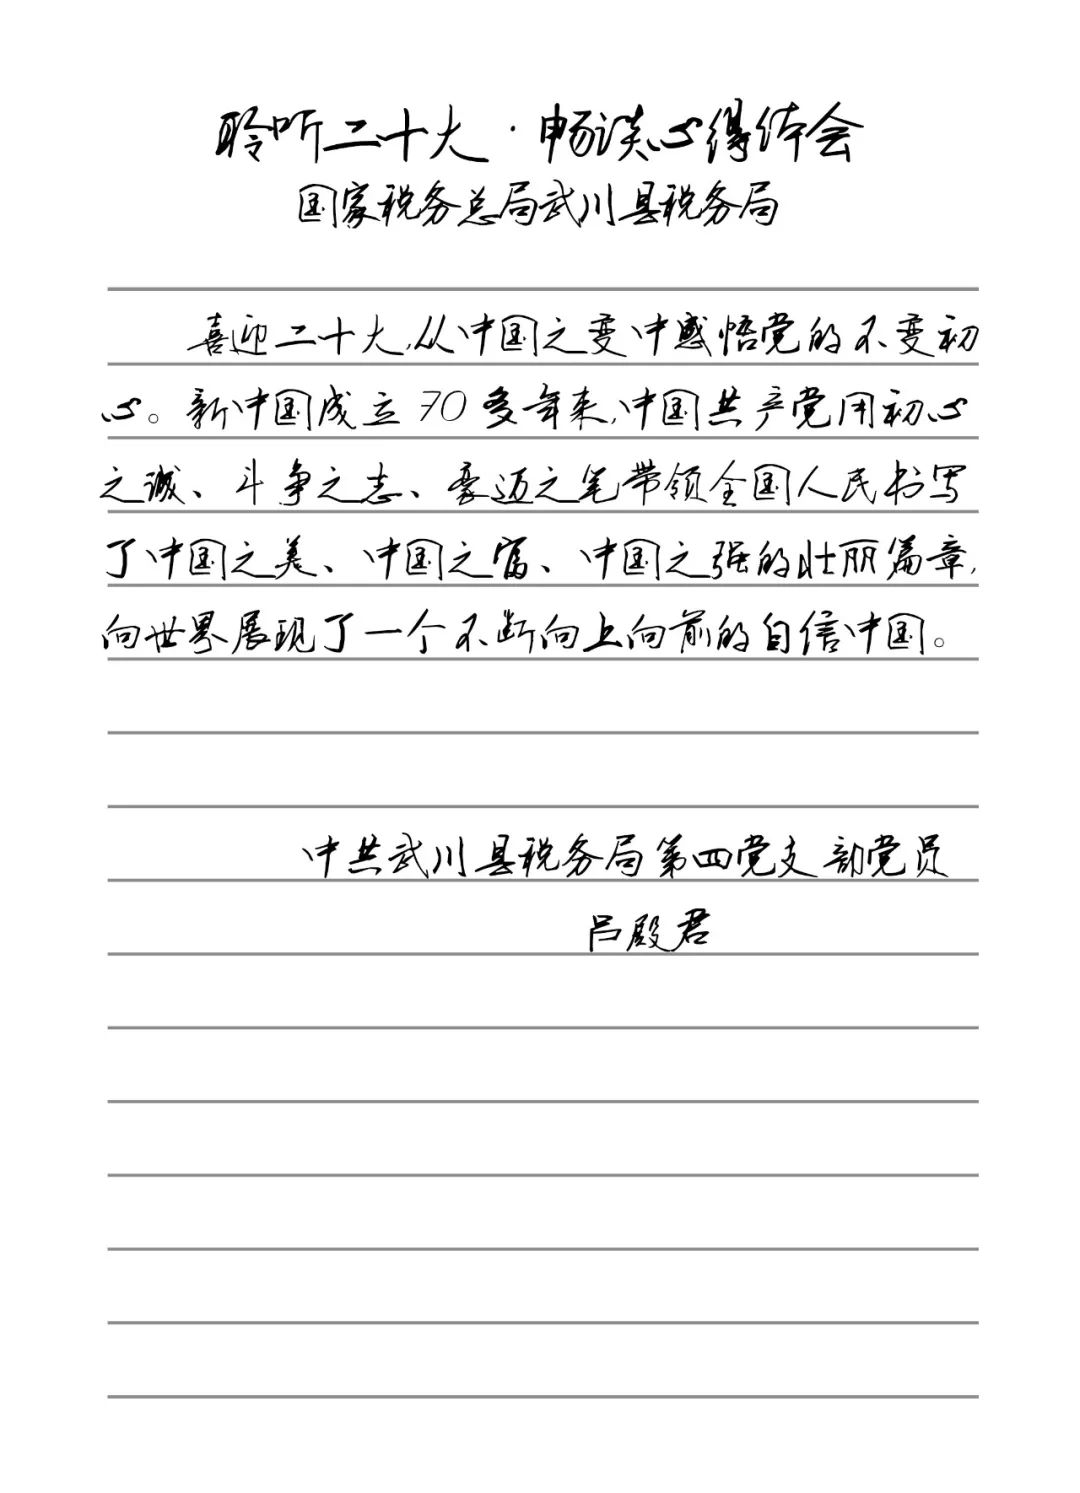 聆听二十大·畅谈心得体会
国家税务总局武川县税务局
喜迎二十大,从中国之变中感悟党的不变初
心。新中国成立70多年来,中国共产党用初心
之诚、斗争之志、豪迈之笔带领全国人民书写
了中国之美、中国之富、中国之强的壮丽篇章,
向世界展现了一个不断向上向前的自信中国。
中共武川县税务局第四党支部党员
吕殿君